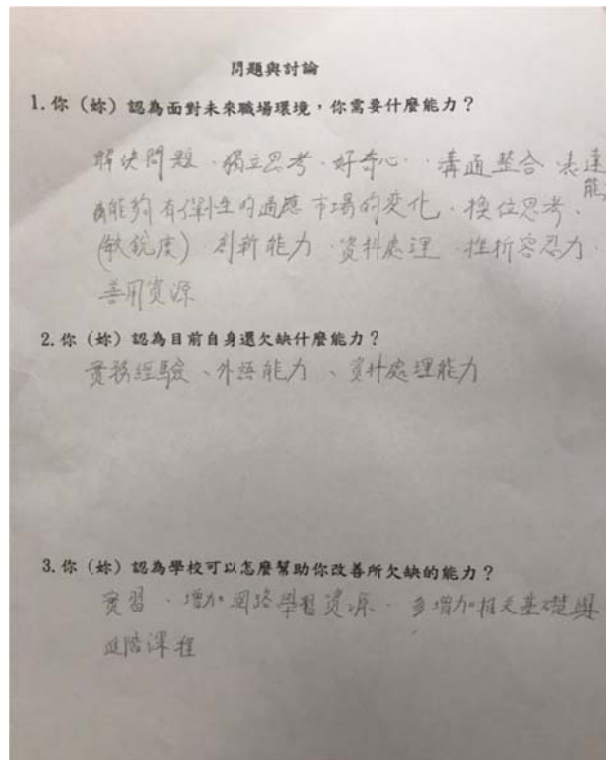 問題與討論
1.你（妳）認為面對未來職場環境，你需要什麼能力？
解決問題、獨立思考、好奇心、溝通整合、表達能
能夠有彈性的適應市場的变化、換位思考、
(敏銳度)創新能力、資料處理、挫折容忍力、
善用資源
2.你（妳）認為目前自身還欠缺什麼能力？
實務經驗、外語能力、資料處理能力
3.你（妳）認為學校可以怎麼幫助你改善所欠缺的能力？
實習、增加網路學習資源、多增加相关基礎與
進階課程